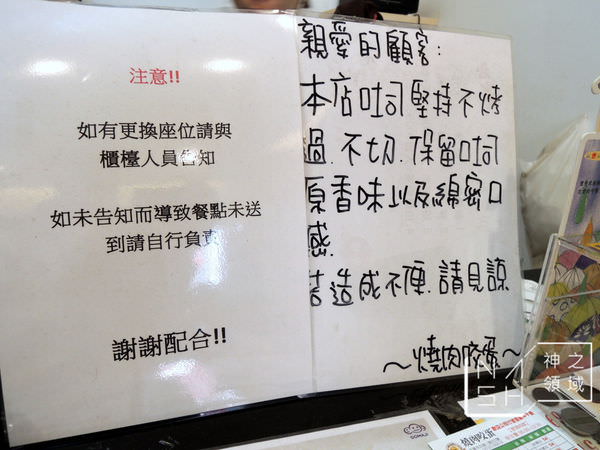 注意!!
如有更換座位請與
櫃檯人員告知
如未告知而導致餐點未送
到請自行負責
謝謝配合!!
親愛的顧客:
本店吐司堅持不烤
過.不切.保留吐司
原香味以及綿密口
感.
若造成不便.請見諒
～燒肉咬蛋～
神之
領域
燒肉咬蛋